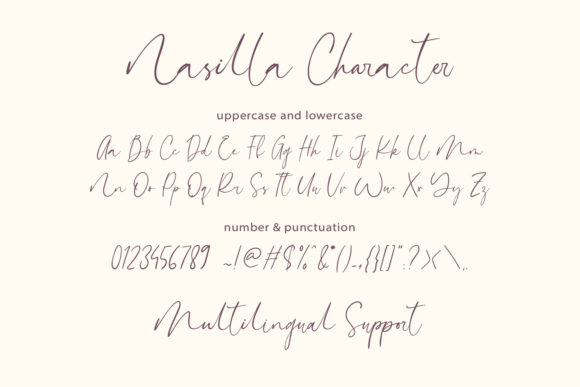 Nasilla Character
uppercase and lowercase
Aa Bb Cc Dd Ee Ff Gg Hh Ii Jj Kk Ll Mm
Nn Oo Pp Qq Rr Ss Tt Uu Vv Ww Xx Yy Zz
number & punctuation
0123456789 ~!@#$%^&*()_-+{}[]":?><\,.
Multilingual Support